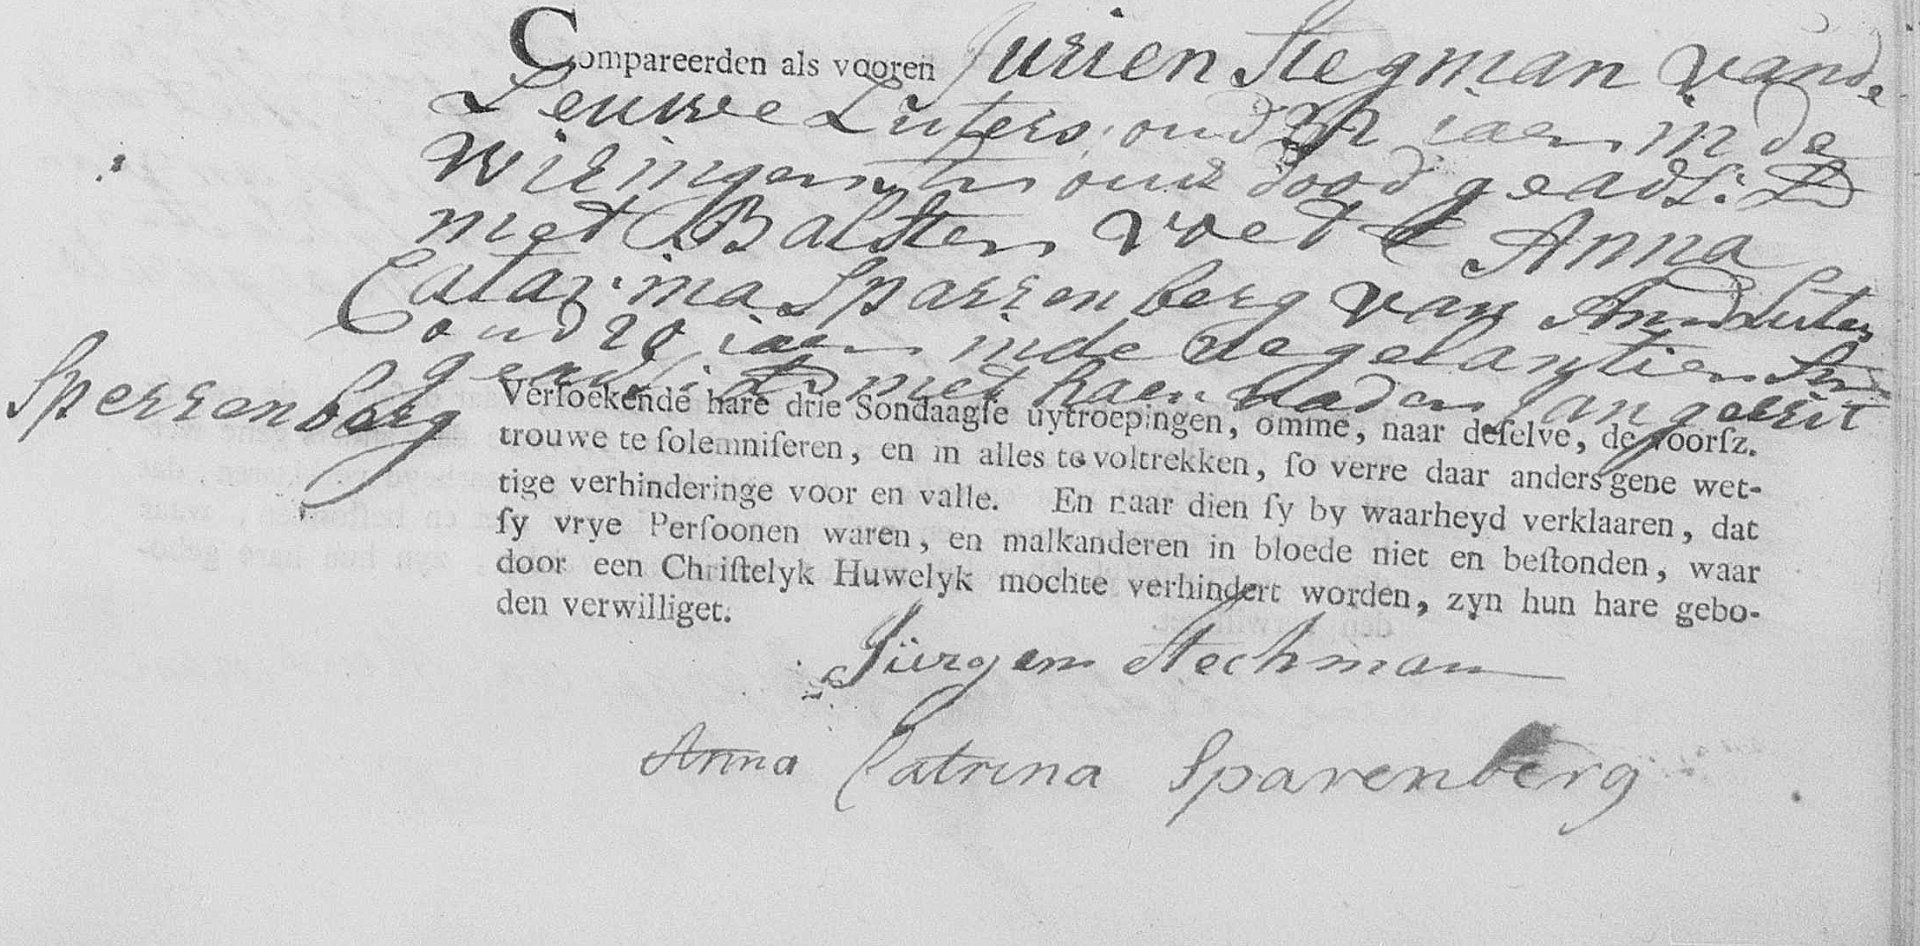 Compareerden als vooren Jurien Stegman vande
Leuwe Luters oud 32 iaer in de
Wieringerstr ouds dood geads:
met Balster Voet & Anna
Catarina Sparrenberg van Amst Luters
oud 29 iaer inde
met haer vader Jan gerrit
Sperrenberg
Versoekende hare drie Sondaagse uytroepingen, omme, naar deselve, de voorsz.
trouwe te solemniseren, en in alles te voltrekken, so verre daar anders gene wet-
tige verhinderinge voor en valle. En naar dien sy by waarheyd verklaaren, dat
sy vrye Persoonen waren, en malkanderen in bloede niet en bestonden, waar
door een Christelyk Huwelyk mochte verhindert worden, zyn hun hare gebo-
den verwilliget.
Jürgen Stechman
Anna Catrina Sparenberg